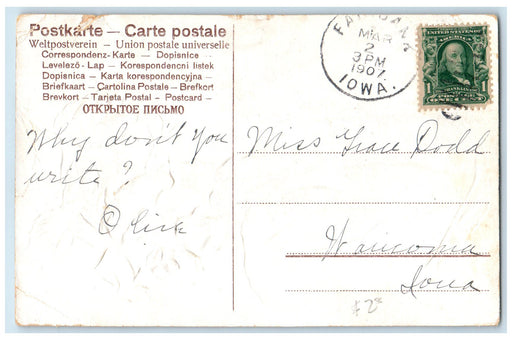 Postkarte — Carte postale
Weltpostverein – Union postale universelle
Correspondenz-Karte – Dopisnice
Levelező - Lap – Korespondencni listek
Dopisnica – Karta korespondencyjna –
Briefkaart – Cartolina Postale – Brefkort
Brevkort – Tarjeta Postal - Postcard –
ОТКРЫТОЕ ПИСЬМО
MAR
2
3PM
1907.
IOWA.
UNITED STATES OF AMERICA
FRANKLIN
POSTAGE
1 ONE CENT 1
Why don't you
write?
Miss Grace Dodd
Waucoma
Iowa